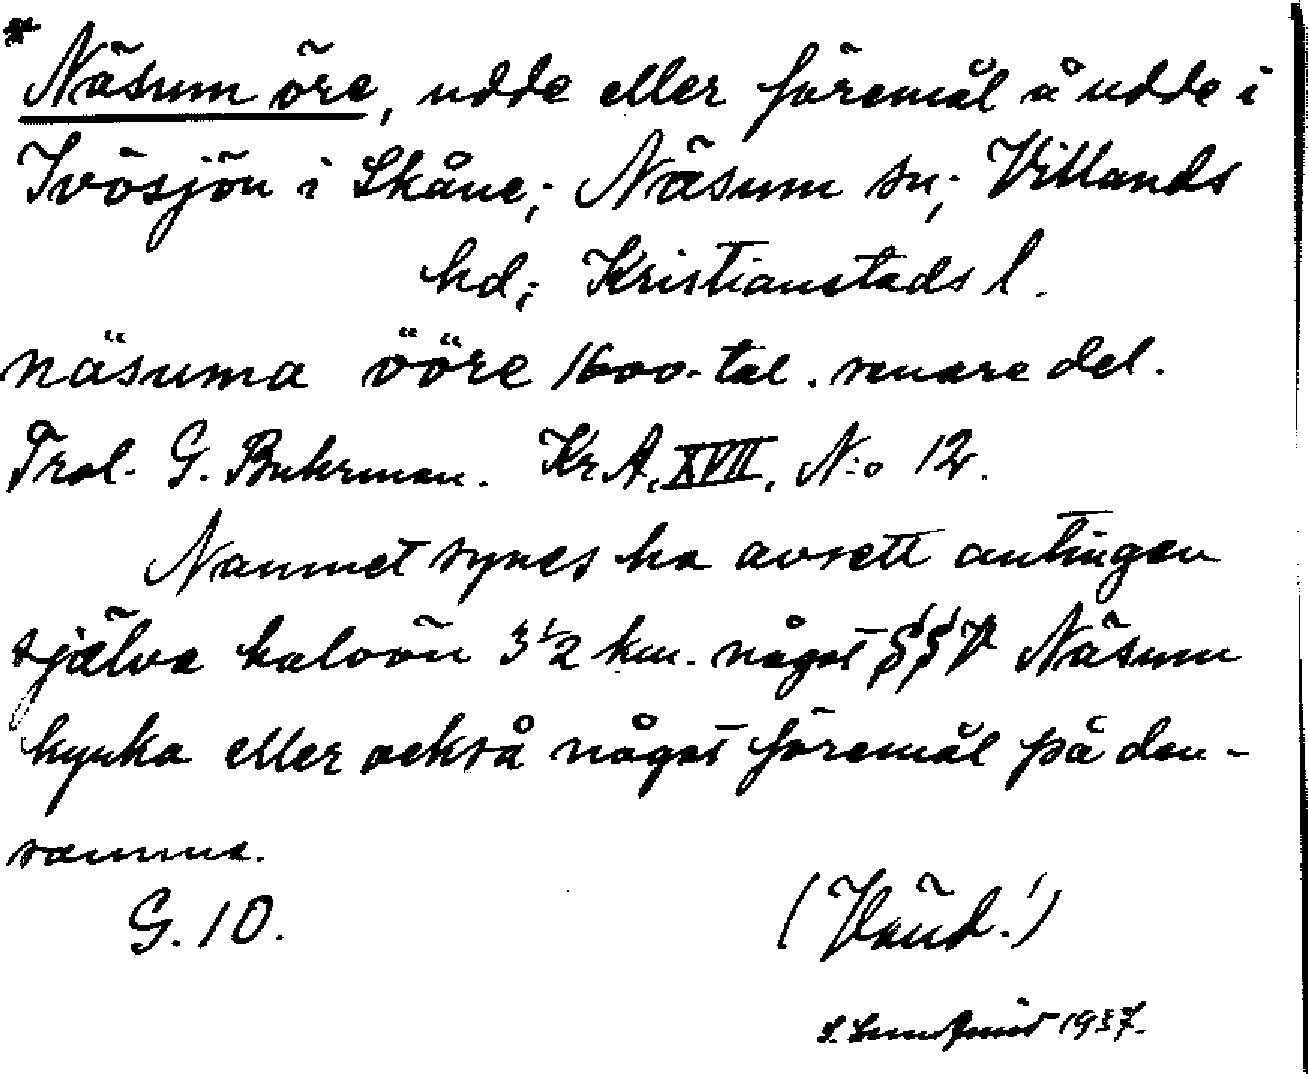 * Näsum öre, udde eller föremål å udde i
Ivösjön i Skåne; Näsum sn; Villands
hd; Kristianstads l.
näsuma ööre 1600-tal. senare del.
Trol. G. Buhrman. Kr A, XVII, N:o 12.
Namnet synes ha avsett antingen
själva halvön 3 1/2 km. något S S V Näsum
kyrka eller också något föremål på den-
samma.
G. 10.
(Vänd!)
S. Lundquist 1937.